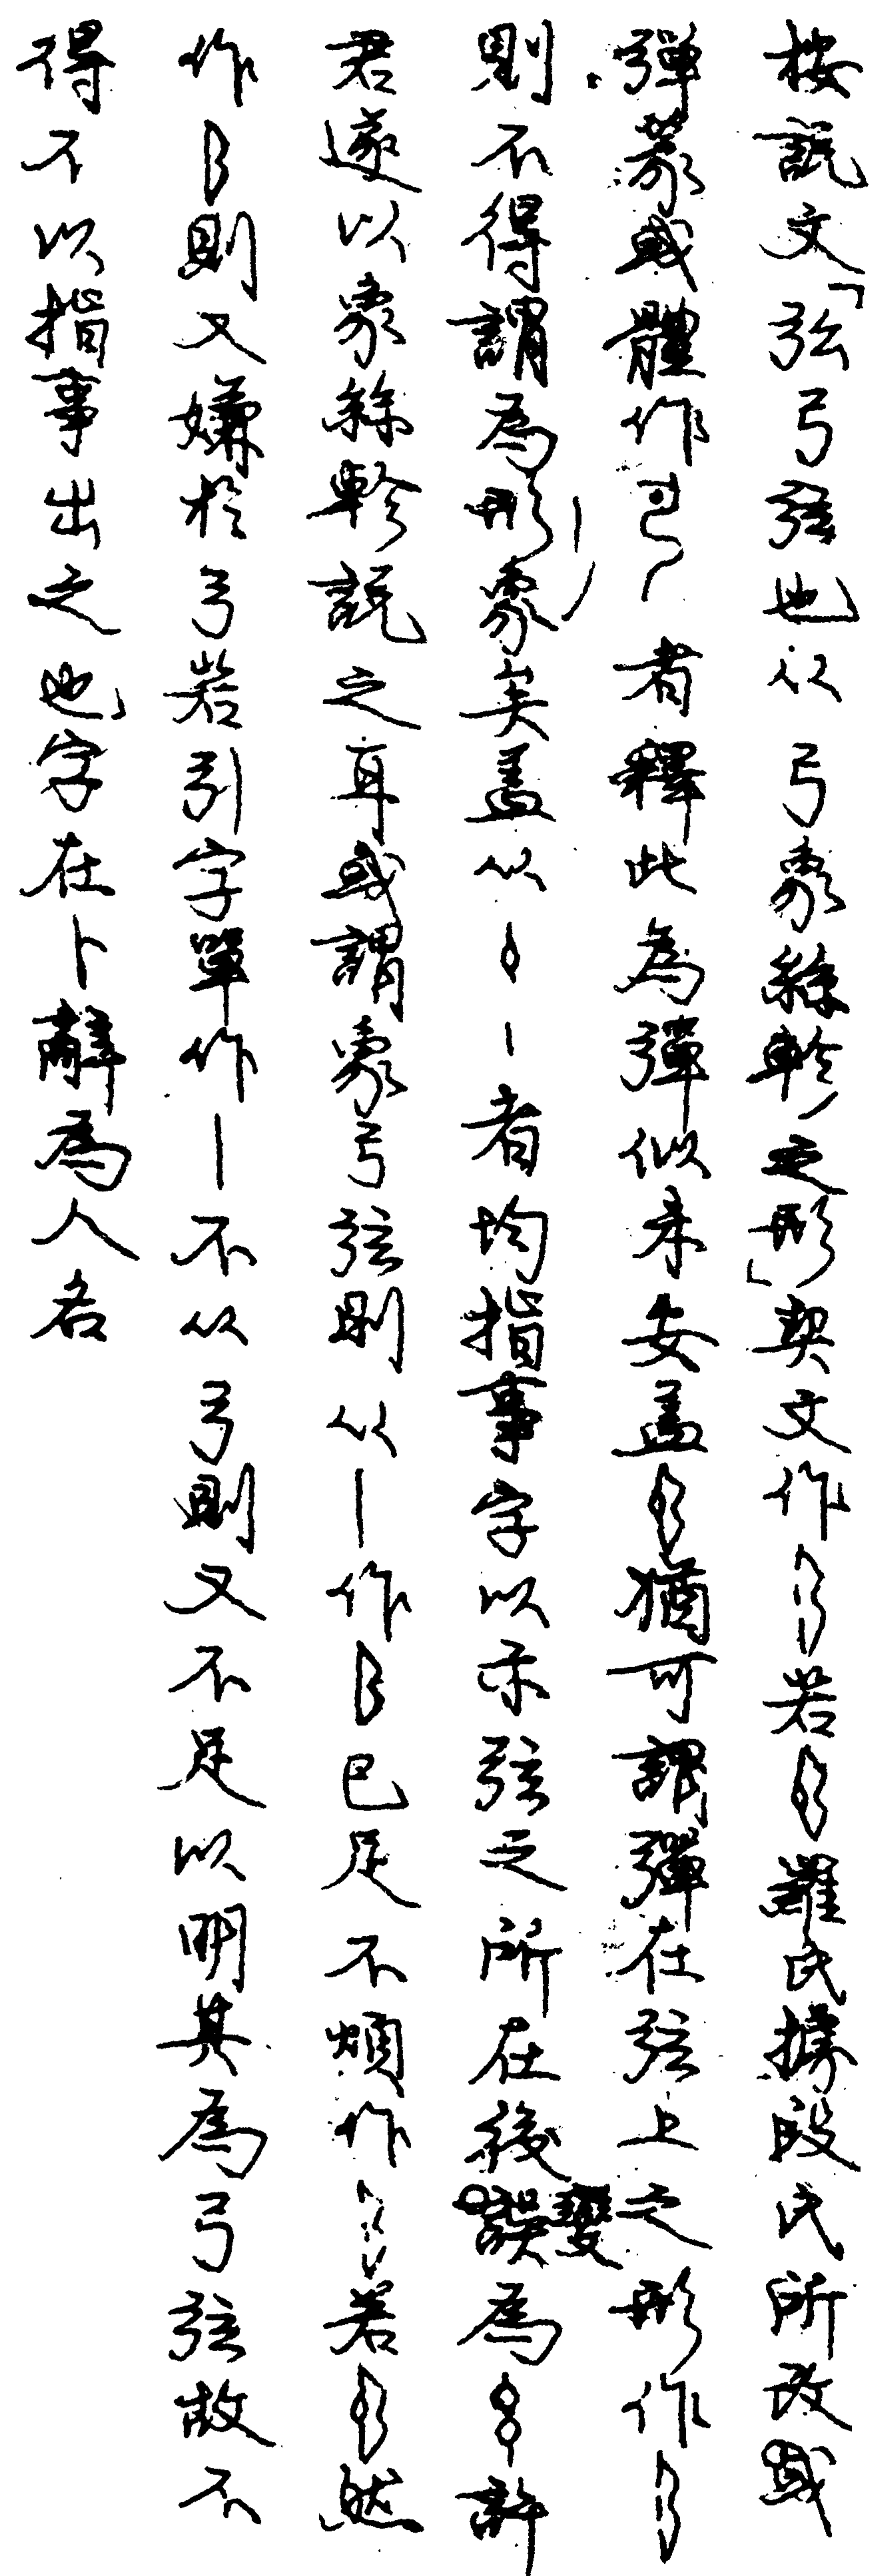 按説文「弦弓弦也从弓象絲軫之形」契文作若羅氏據段氏所改或
彈篆或體作者釋此為彈似未安蓋猶可謂彈在弦上之形作
則不得謂為形象矣蓋从丨者均指事字以示弦之所在後變為許
君遂以象絲軫説之耳或謂象弓弦則从丨作已足不煩作若然
作則又嫌於弓若引字單作丨不从弓則又不足以明其為弓弦故不
得不以指事出之也字在卜辭為人名